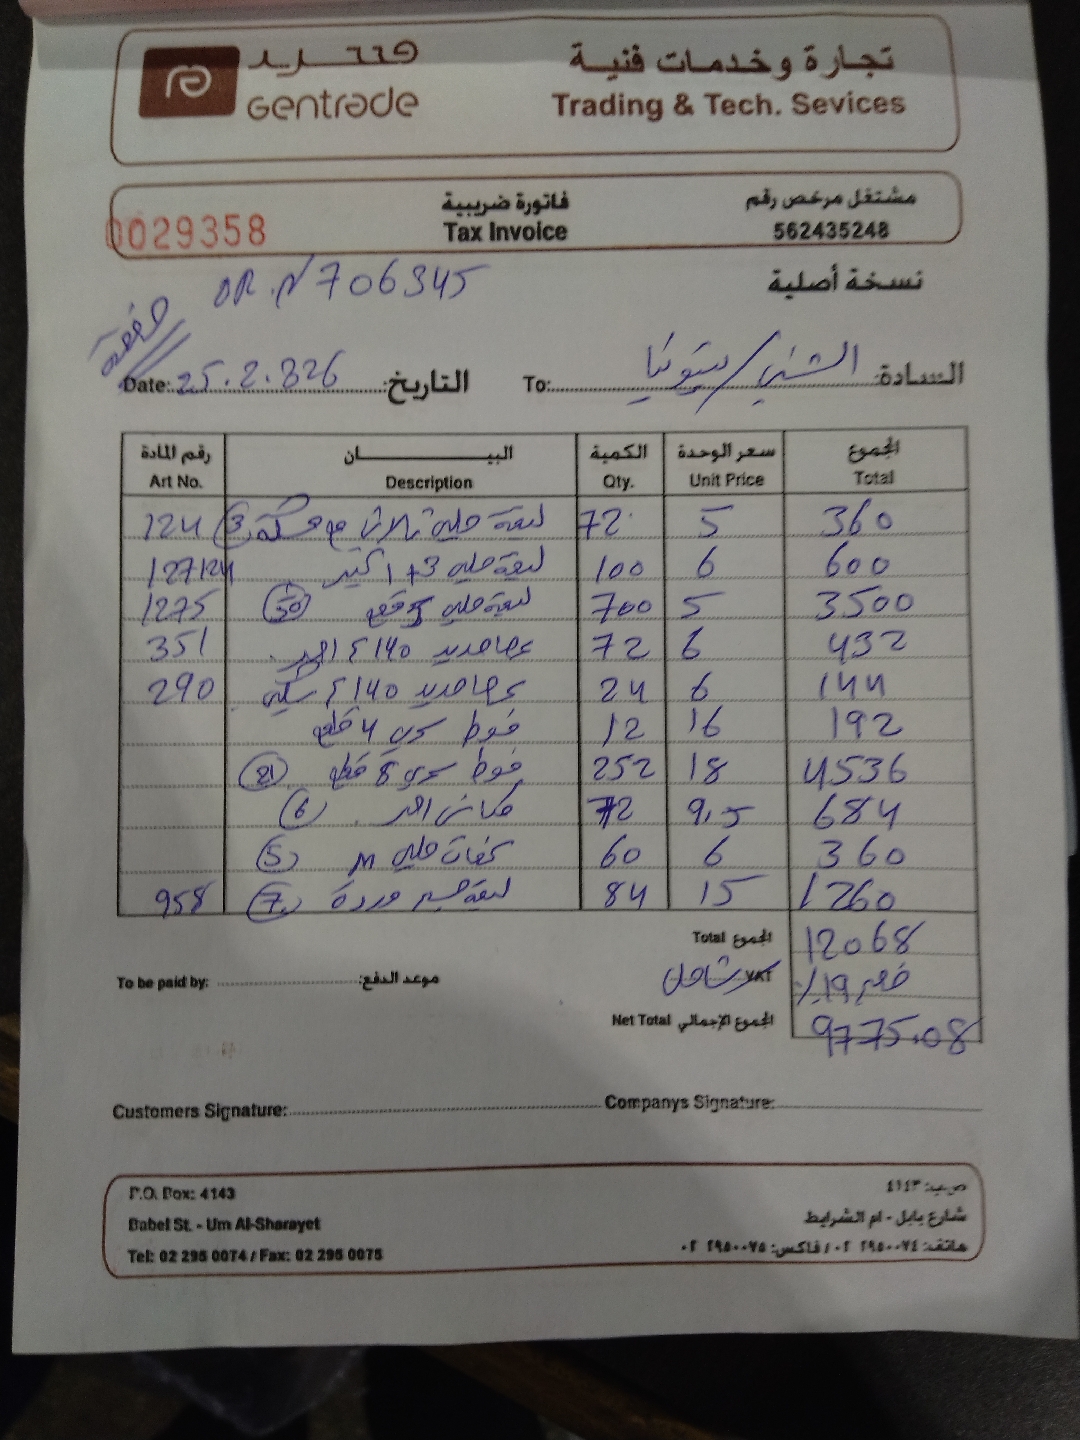 جنتريد
Gentrade
تجارة وخدمات فنية
Trading & Tech. Sevices
0029358
فاتورة ضريبية
Tax Invoice
مشتغل مرخص رقم
562435248
نسخة أصلية
OR. N 706345
Date: 25.2.2026 التاريخ:
To: السادة: الشني / بيتونيا
رقم المادة البيـــان الكمية سعر الوحدة المجموع
Art No. Description Qty. Unit Price Total
124 ليفة جلي 3 72 5 360
127124 ليفة جلي 3+1 كبير 100 6 600
1275 ليفة جلي 5 قطع 50 700 5 3500
351 عصا حديد 140 احمر 72 6 432
290 عصا حديد 140 24 6 144
فوط سحري 4 قطع 12 16 192
فوط سحري 8 قطع 21 252 18 4536
مكانس احمر 6 72 9.5 684
كفات جلي M 5 60 6 360
958 ليفة جسم وردة 7 84 15 1260
Total المجموع 12068
To be paid by: موعد الدفع:
VAT شامل خصم 19%
Net Total المجموع الإجمالي 9775.08
Customers Signature: Companys Signature:
P.O. Box: 4143
Babel St. - Um Al-Sharayet
Tel: 02 295 0074 / Fax: 02 295 0075
ص.ب: ٤١٤٣
شارع بابل - ام الشرايط
هاتف: ٠٢ ٢٩٥٠٠٧٤ / فاكس: ٠٢ ٢٩٥٠٠٧٥